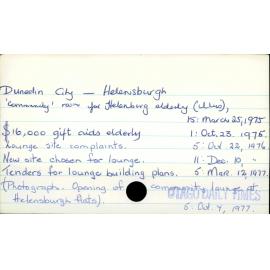 Dunedin City — Helensburgh
'Community' room for Helensburg elderly (illus),
15: March 25, 1975
$16,000 gift aids elderly 1: Oct. 23. 1975.
Lounge site complaints. 5: Oct 22, 1976
New site chosen for lounge. 11: Dec. 10, "
Tenders for lounge building plans. 5: Mar. 12, 1977.
(Photograph. Opening of community lounge at
Helensburgh flats). OTAGO DAILY TIMES
5: Oct. 4, 1977.